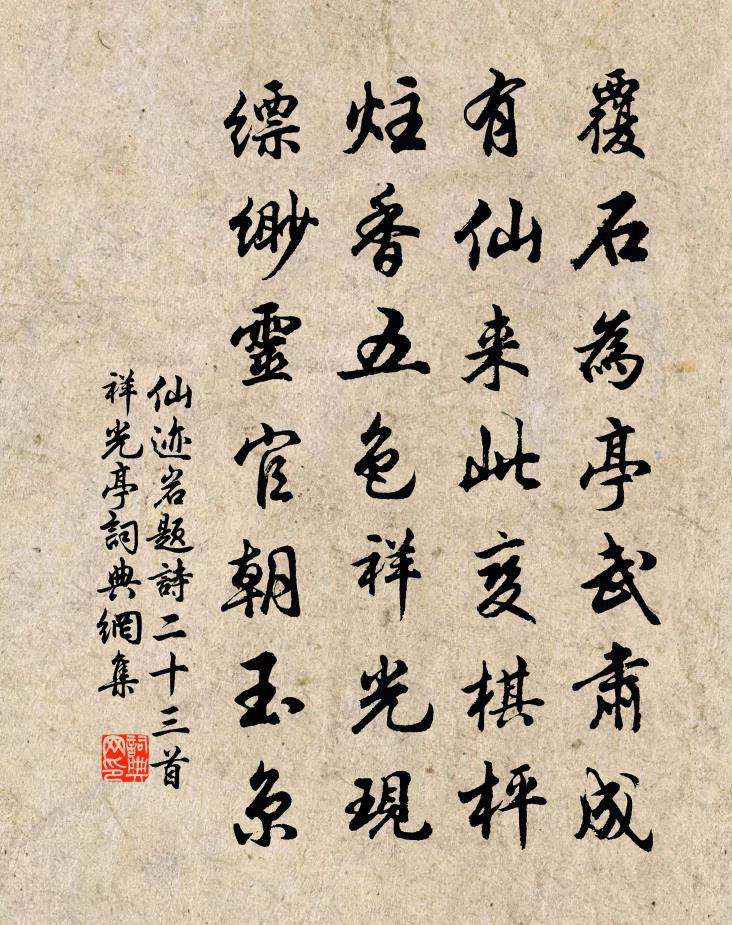 覆石為亭武肅成
有仙来此变棋枰
炷香五色祥光現
縹緲靈官朝玉京
仙迹岩题詩二十三首
祥光亭詞典網集
詞典网印